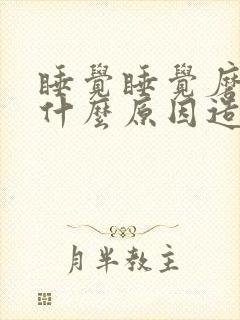 睡覺睡覺磨
什麼原因造
月半教主